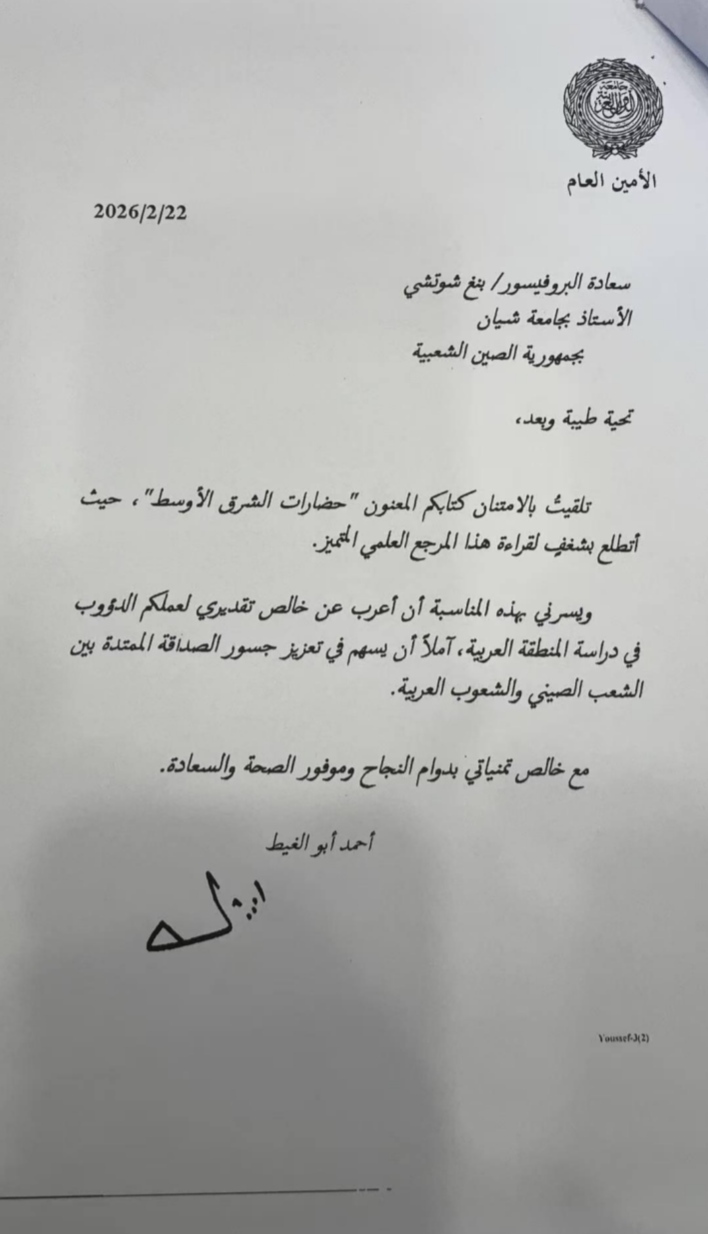 جامعة الدول العربية
الأمين العام
2026/2/22
سعادة البروفيسور/ بنغ شوتشي
الأستاذ بجامعة شيان
بجمهورية الصين الشعبية
تحية طيبة وبعد،
تلقيتُ بالامتنان كتابكم المعنون "حضارات الشرق الأوسط"، حيث
أتطلع بشغفٍ لقراءة هذا المرجع العلمي المتميز.
ويسرني بهذه المناسبة أن أعرب عن خالص تقديري لعملكم الدؤوب
في دراسة المنطقة العربية، آملاً أن يسهم في تعزيز جسور الصداقة الممتدة بين
الشعب الصيني والشعوب العربية.
مع خالص تمنياتي بدوام النجاح وموفور الصحة والسعادة.
أحمد أبو الغيط
Youssef-J(2)